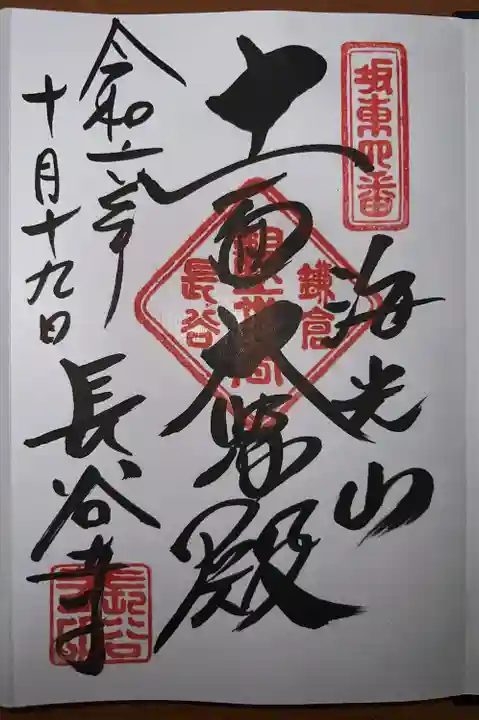 坂東四番
海光山
十一面大悲殿
鎌倉
観世音
長谷
令和六年
十月十九日
長谷寺
長谷寺印